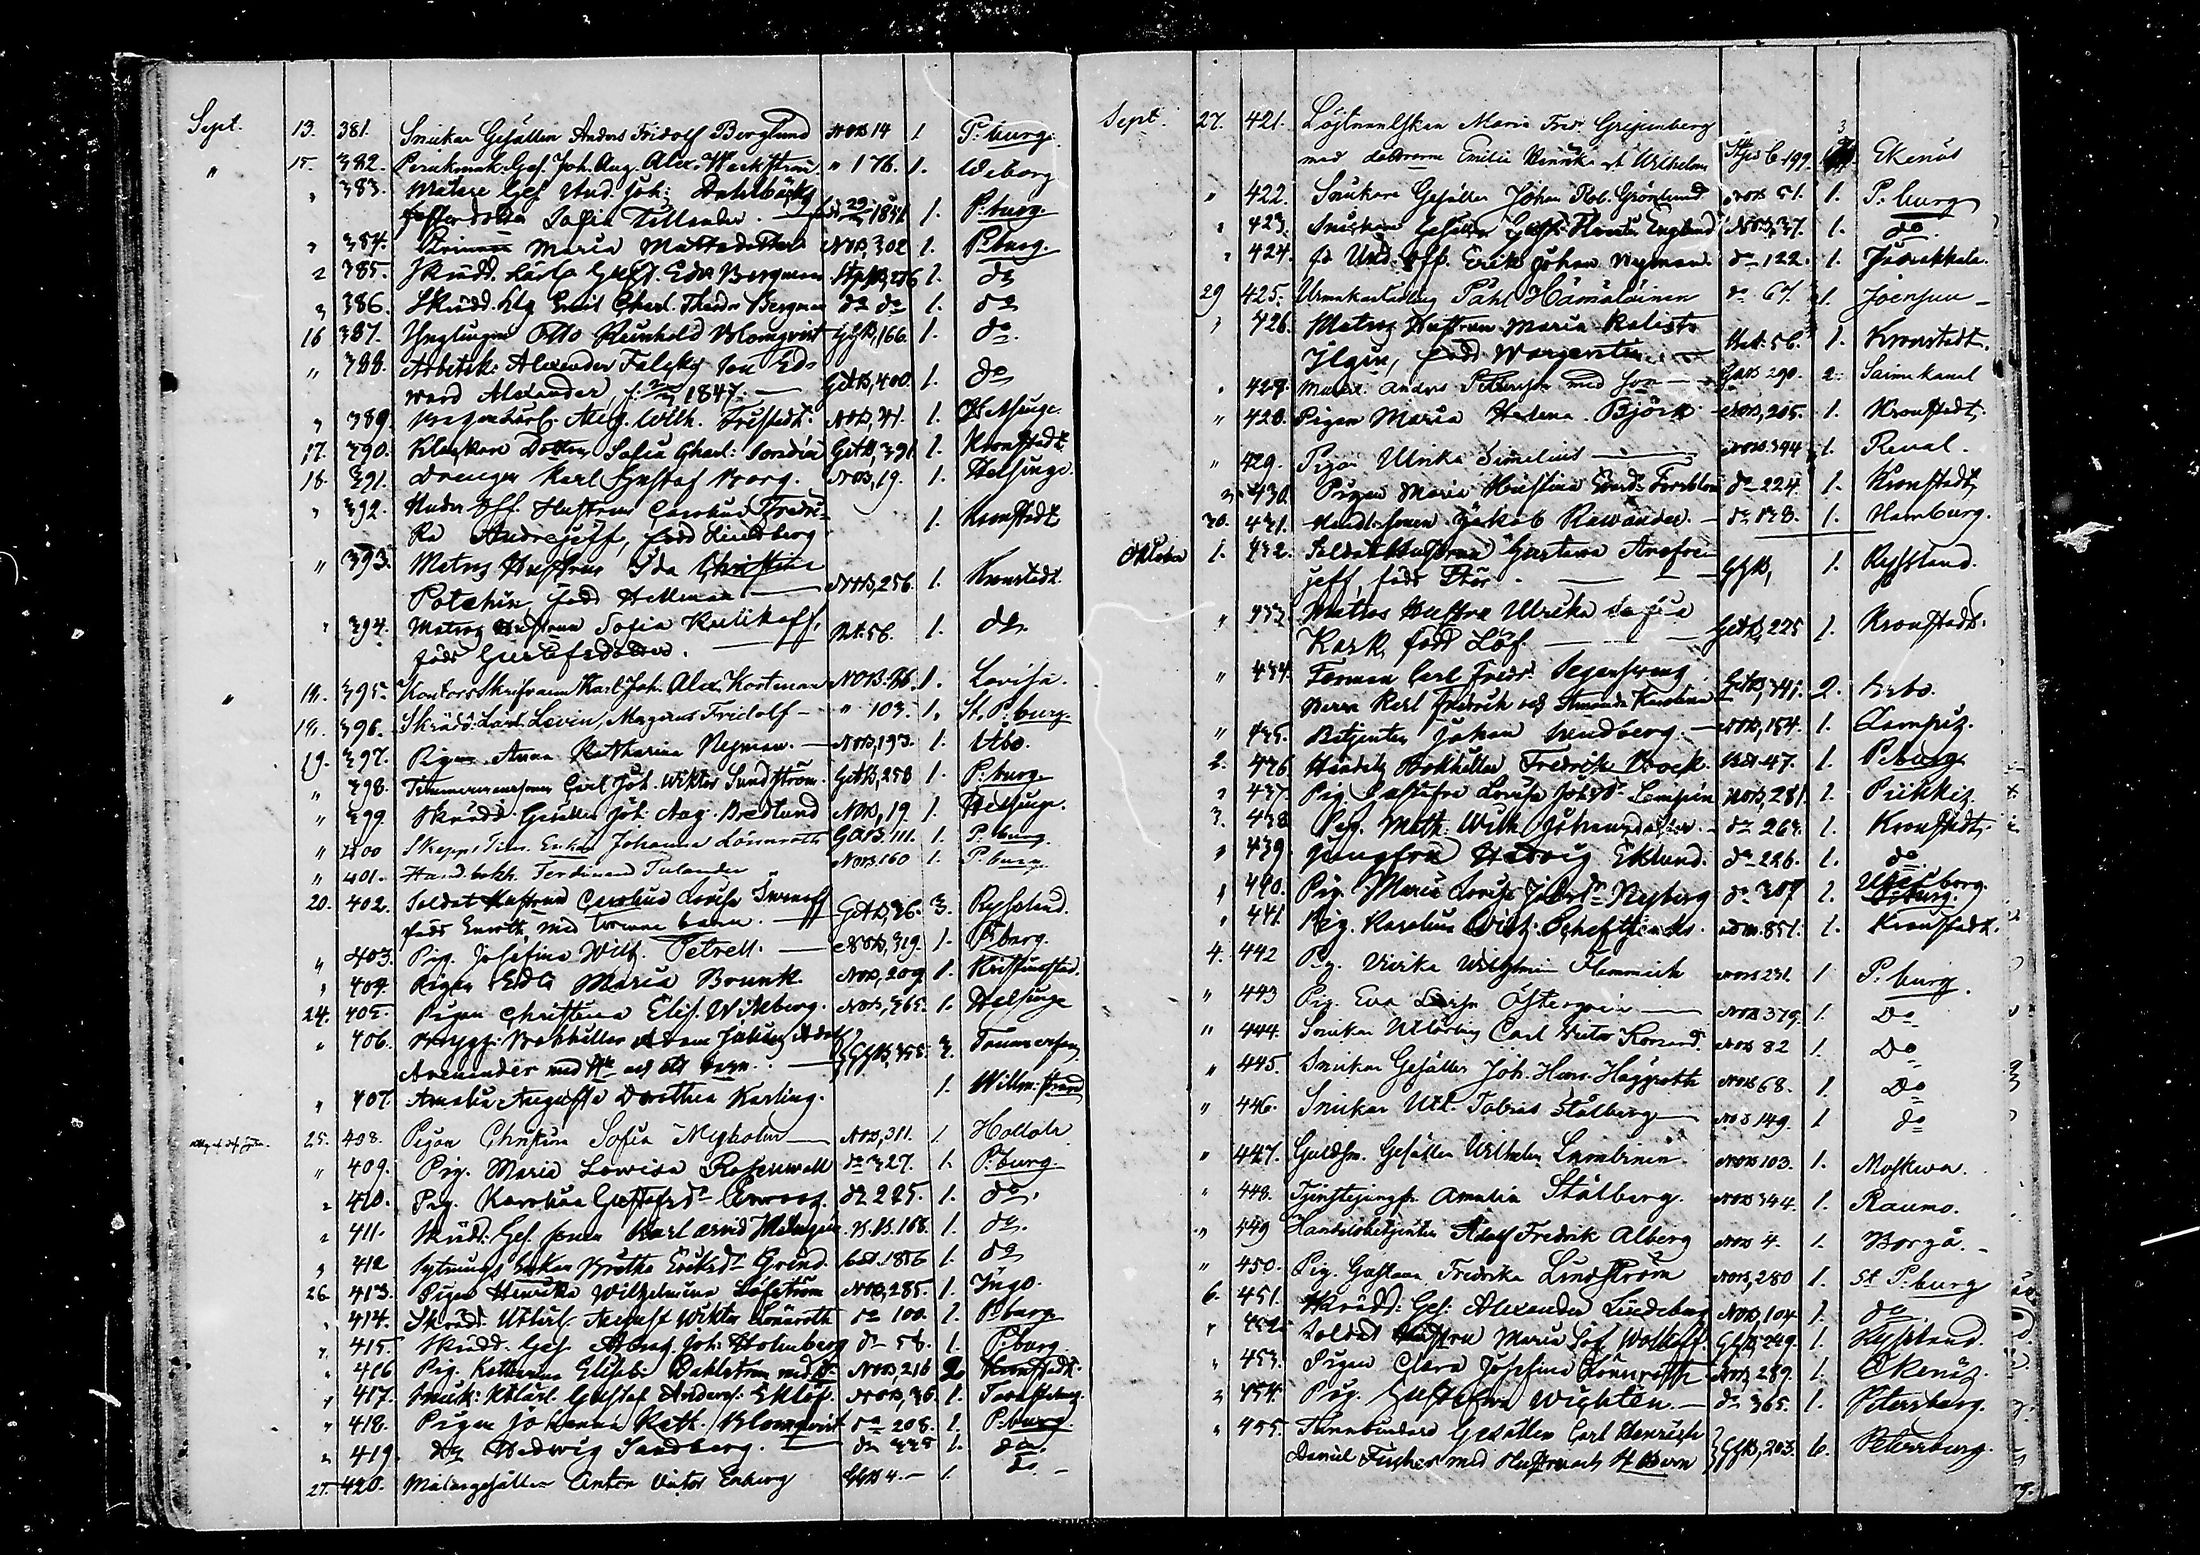 Sept. 13. 381. Snickar Gesällen Anders Fridolf Berglund NOB 14 1 P:burg.
" 15. 382. Perukmak. Ges. Joh. Aug. Alex. Weckström " 176. 1. Wiborg
" 383. Målare Ges. And. Joh: Dahlbäcks
fosterdotter Sofia Tillander. 1841 1. P:burg.
" 384. Maria Mattsdotter NOB, 302 1. P:burg.
" 385. Skrädd. Lärl. Gust. Edv. Bergman 1. do
" 386. Skrädd. Emil Charl. Theodor Bergman do do 1. do
16 387. Ynglingen Otto Reinhold Blomqvist GGB, 166. 1. do.
" 388. Arbetsk: Alexander Falcks son Ed-
ward Alexander, f. 1847. GetB, 400. 1. do
" 389. Aug. Wilh. NOB, 41. 1. Helsinge.
17. 390. Klockare Dottern Sofia Charl: GetB, 391 1. Kronstadt
18. 391. Drengen Karl Gustaf Borg. NOB, 19. 1. Helsinge
" 392. Under Off. Hustrun Carolina Fredri-
ka Andrejeff, född Lindberg 1. Kronstadt
" 393. Matros Hustrun Ida Christina
Potchin, född Hellman NOB, 256. 1. Kronstadt.
" 394. Matros Hustrun Sofia Kulikoff,
född Gustafsdotter. Bet. 56. 1. do.
" 18. 395. Kontors Skrifvaren Karl Joh. Alex. Kortman NOB. 86. 1. Lovisa.
18. 396. Skrädd. Lärl. Levin Magnus Fridolf " 103. 1. St. P:burg.
19. 397. Pigan Anna Katharina Nyman. NOB, 193. 1. Åbo.
" 398. Timmermanssonen Carl Joh. Wiktor Sundström. GetB, 258 1. P:burg.
" 399 Skrädd. Gesällen Joh. Aug. Bredlund NOB, 19 1. Helsinge.
" 400 Skepps Tim. Enkan Johanna Lönnroth GAB. 111. 1. P:burg.
" 401. Hand. bokh. Ferdinand Tulander NOB. 160 1. P:burg
20. 402. Soldat Hustrun Carolina Lovisa Iwanoff
född Enroth, med tvenne barn. GetB, 36. 3. Ryssland.
" 403. Pig. Josefina Wilh. Petrell. NOB, 319. 1. P:burg.
" 404. Pigan Edla Maria Brunk. NOB, 209 1. Kristinestad.
24. 405. Pigan Christina Elis. Wikberg. NOB, 365. 1. Helsinge
" 406. Brygg. Bokhållar Adam Julius Adolf
Arenander med Hu och ett barn. GGB, 355. 3. Tammerfors
" 407. Amalia Augusta Dorothea Karling. 1. Willm:strand
25. 408. Pigan Christina Sofia Nyholm NOB, 311. 1. Hollola
" 409. Pig. Maria Lowisa Rosenwall do 327. 1. P:burg.
" 410. Pig. Karolina Gustafsd. do 225. 1. do.
" 411. Skrädd: Ges. sonen Karl Arvid K.B. 168. 1. do.
" 412 Enkan Britha Eriksdr Grind. 1856 1. do
26. 413. Pigan Henrika Wilhelmina Löfström NOB, 285. 1. Ingo.
" 414. Skrädd. Utlärl. August Wiktor Lönnroth do 100. 1. P:burg
" 415. Skrädd. Ges. Joh. Holmberg do 58. 1. P:burg.
" 416 Pig. Katharina Elisabe Dahlström med NOB, 216 2. Kronstadt.
" 417. Snick: Utlärl. Gustaf Anders. Eklöf. NOB, 36. 1. Tavastehus.
" 418. Pigan Johanna Kath. Blomqvist do 208. 1. P:burg.
" 419. do Hedwig Sandberg. do 335 1. do.
27. 420. Målaregesällen Anton Victor Enberg GGB 4. 1. do
Sept. 27. 421. Löjtnantskan Maria Fred. Gripenberg
med döttrarne Emilie Henrika och Wilhelmina 199. 3 Ekenäs
" 422. Snickare Gesällen Johan Rob. Grönlund NOB 51. 1. P:burg
" 423. Snickare Gesällen Gust. Englund NOB, 37. 1. do.
" 424. fd Und. Off. Erik Johan Nyman. do 122. 1. Janakkala.
29 425. Urmakarlärling Påhl Hämäläinen do 67. 1. Joensuu
" 426. Matros Hustrun Maria Kalista
Ilgin, född Wargentin. Bet. 56. 1. Kronstadt.
" 427. Anders Petterson med son GAB 290. 2. Saima kanal
" 428. Pigan Maria Helena Björk NOB, 205. 1. Kronstadt.
" 429. Pigan Ulrika Simelius NOB. 344 1. Reval.
" 430. Pigan Maria Kristina Forsblom do 224. 1. Kronstadt
30. 431. Handl. sonen Jakob Rawander. do 138. 1. Hamburg.
Oktober 1. 432. Soldat Hustrun Gustava Arefre-
jeff, född Stör. GGB, 1. Ryssland.
" 433. Matros Hustru Ulrika Sofia
Kark, född Löf. GetB, 225 1. Kronstadt.
" 434. Forman Carl Fredr. Segerstrengs
Barn Karl Fredrik och Amanda Karolina GetB, 341. 2. Åbo.
" 435. Betjenten Johan Lindberg. NOB, 154. 1. Kampis.
2. 436. Handels Bokhållar Fredrik Brock Bet. 47. 1. P:burg
" 437. Pig. Gustafva Lovisa Johsdr. Lempin NOB, 281. 1. Pükkiö.
3. 438 Pig. Math. Wilh. Johansdotter. do 263. 1. Kronstadt.
" 439. Jungfrun Hedvig Eklund. do 226. 1. do
" 440. Pig. Maria Lovisa Nyberg do 307 1. Uleåborg.
" 441. Pig. Karolina 851. 1. Kronstadt.
4. 442 Pig. Ulrika Wilhelmin Flemmich NOB 231. 1 P:burg.
" 443 Pig. Eva Lovisa Östergren NOB 379. 1. Do
" 444. Snickar Utlärling Carl Victor NOB 82 1. Do
" 445. Snickar Gesällen Joh. Herm. Häggroth NOB 68. 1. Do
" 446. Snickar Utl. Tobias Stålberg NOB 149. 1 do
" 447. Guldsm. Gesällen Wilhelm Lambinen NOB 103. 1. Moskwa.
" 448. Tjenstejungfr. Amalia Stålberg. NOB 344. 1. Raumo.
" 449 Handelsbetjenten Adolf Fredrik Alberg NOB 4. 1. Borgå.
" 450. Pig. Gustava Fredrika Lindström NOB, 280 1. St. P:burg
6. 451. Skrädd: Ges: Alexander Lindeberg NOB, 104 1. do
" 452. Soldat Hustru Maria Sof. Wolkoff. GGB, 249. 1. Ryssland.
" 453. Pigan Clara Josefina Lönnroth NOB, 289. 1. Ekenäs.
" 454. Pig. Gustafva Wichtén. do 365. 1. Petersburg.
" 455. Tunnbindare Gesällen Carl Henrich
Daniel Fischer med Hustru och 4 Barn GGB, 203. 6. Petersburg.